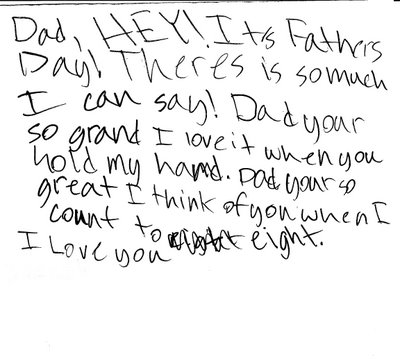 Dad, HEY! Its Fathers
Day! Theres is so much
I can say! Dad your
so grand I love it when you
hold my hand. Dad your so
great I think of you when I
count to eight.
I Love you